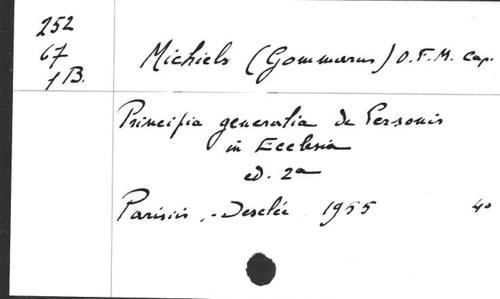 252
67
1 B.
Michiels (Gommarus) O.F.M. Cap.
Principia generalia de Personis
in Ecclesia
ed. 2a
Parisiis, Desclée 1955 4o